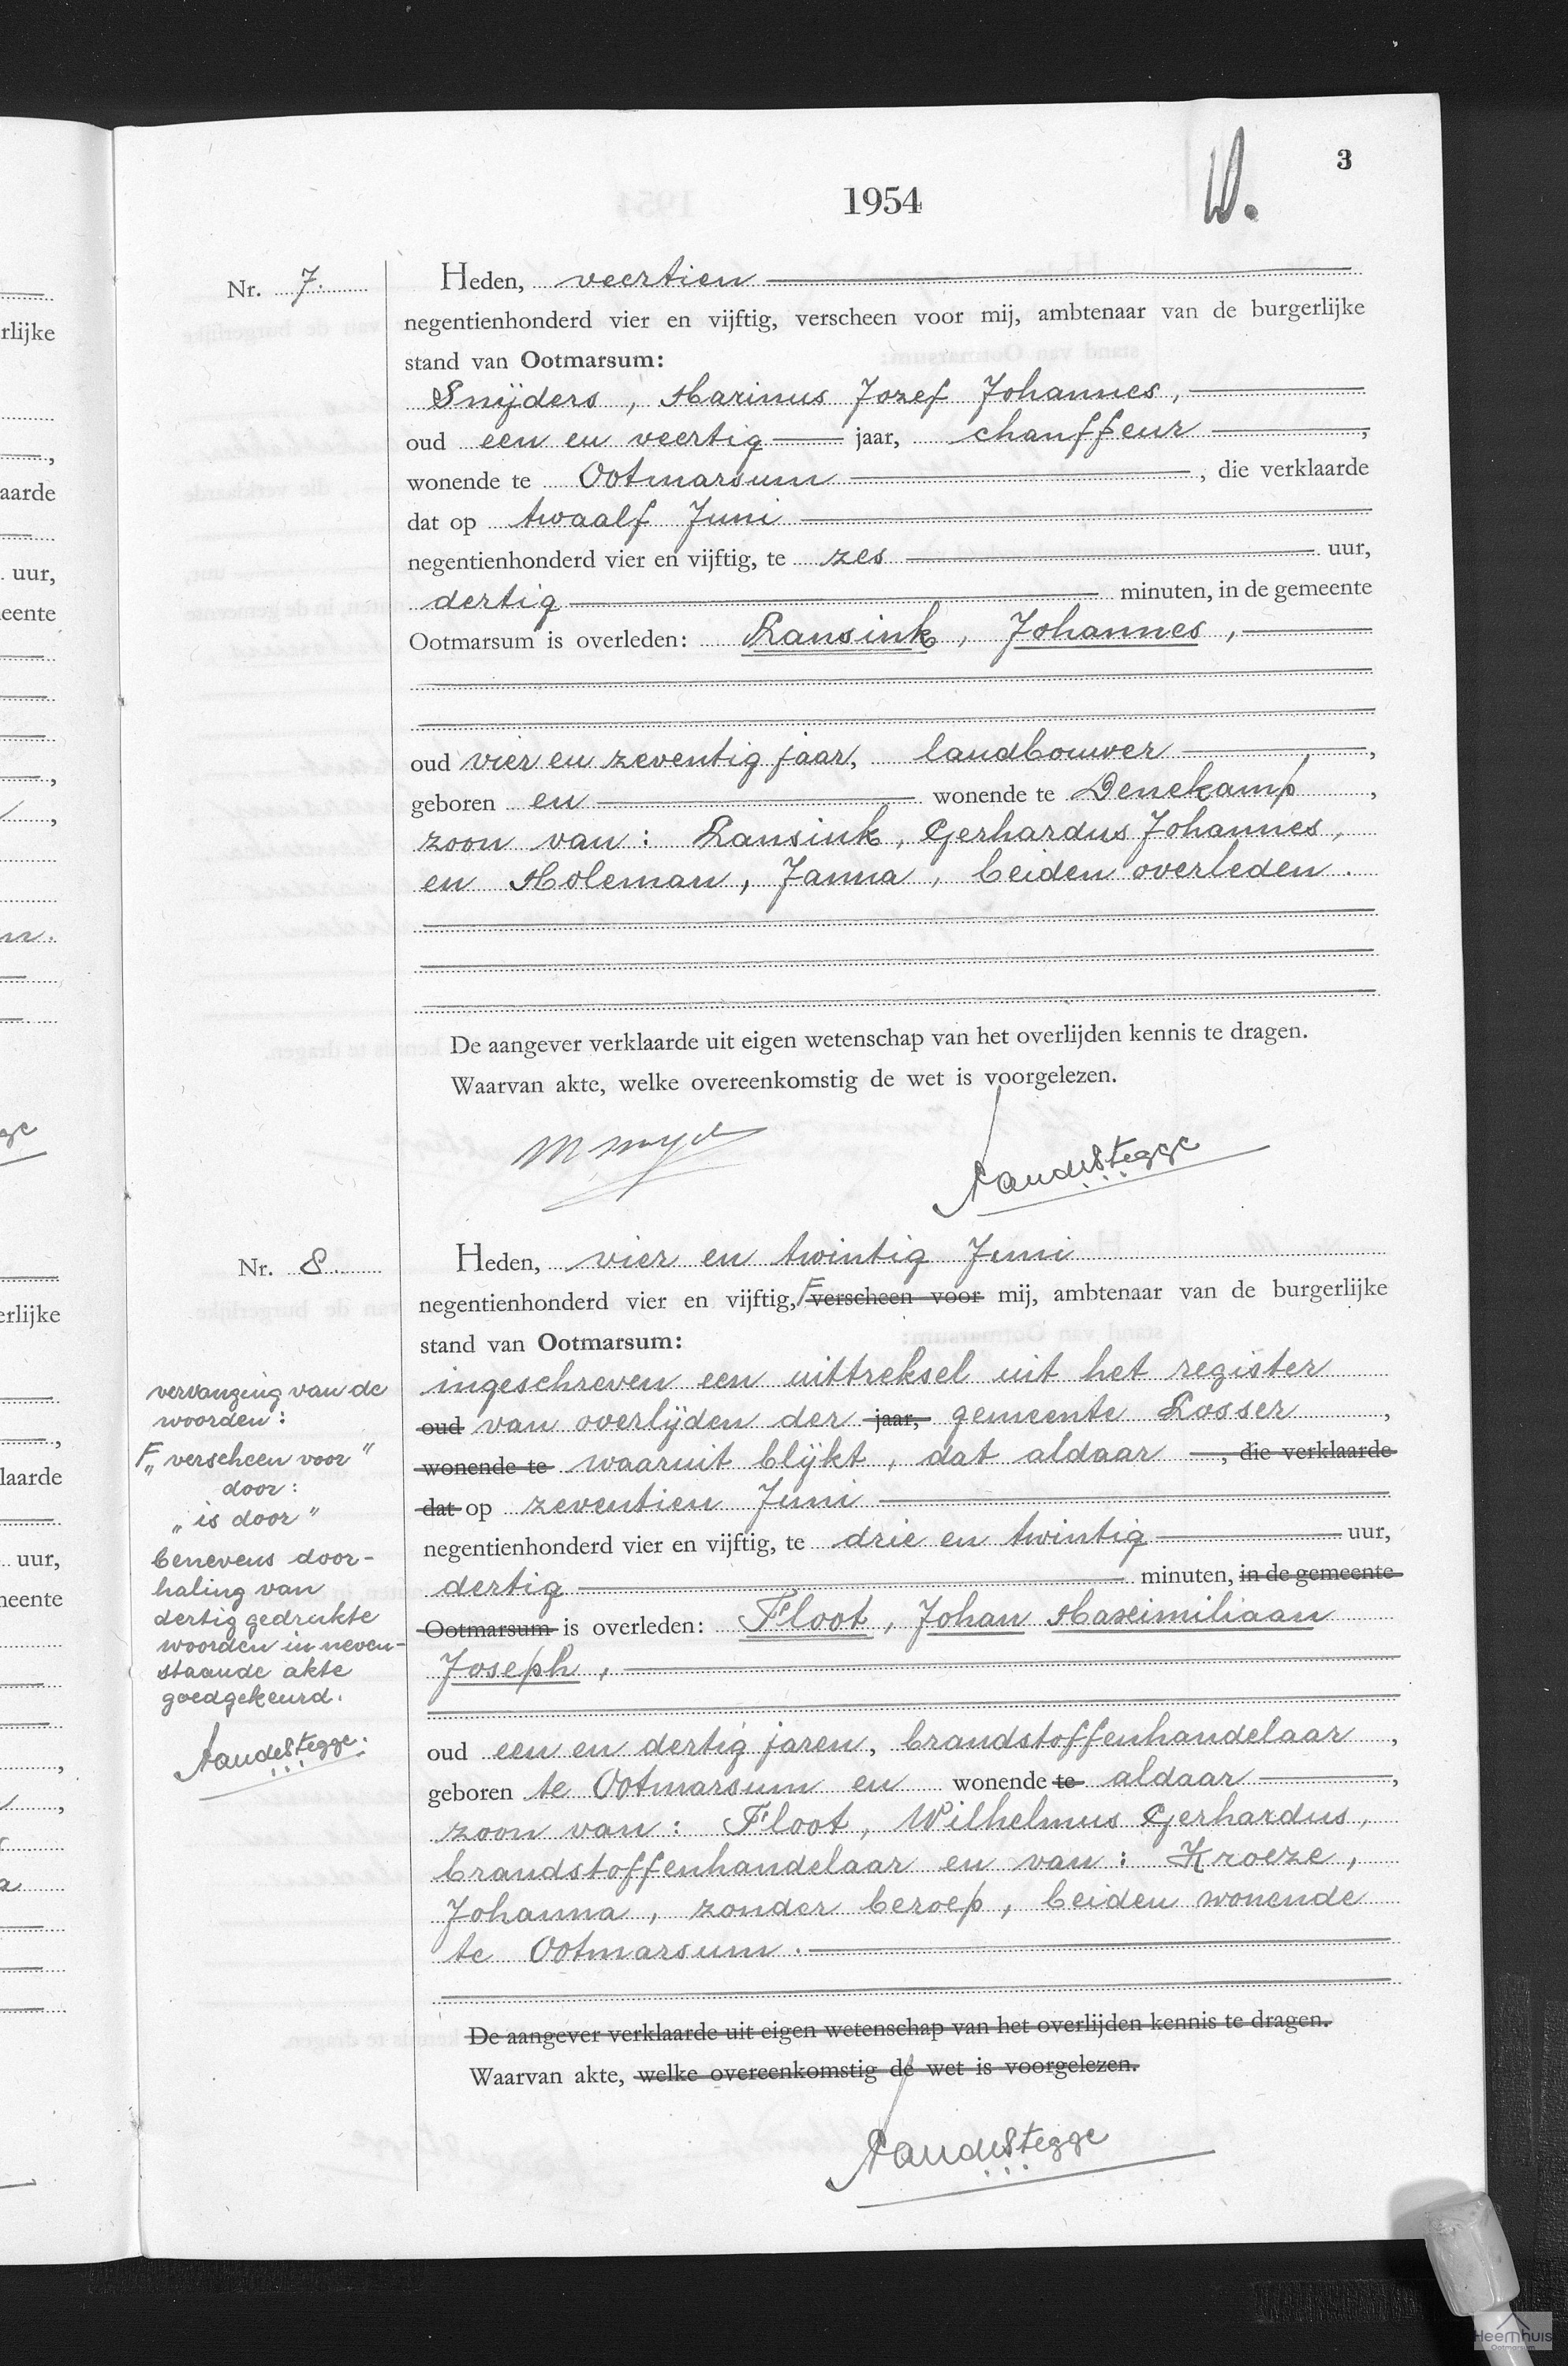 3
1954
W.
Nr. 7.
Heden, veertien
negentienhonderd vier en vijftig, verscheen voor mij, ambtenaar van de burgerlijke
stand van Ootmarsum:
Snijders, Marinus Jozef Johannes,
oud een en veertig jaar, chauffeur,
wonende te Ootmarsum, die verklaarde
dat op twaalf Juni
negentienhonderd vier en vijftig, te zes uur,
dertig minuten, in de gemeente
Ootmarsum is overleden: Lansink, Johannes,
oud vier en zeventig jaar, landbouwer,
geboren en wonende te Denekamp,
zoon van: Lansink, Gerhardus Johannes,
en Holeman, Janna, beiden overleden.
De aangever verklaarde uit eigen wetenschap van het overlijden kennis te dragen.
Waarvan akte, welke overeenkomstig de wet is voorgelezen.
Nr. 8.
Heden, vier en twintig Juni
negentienhonderd vier en vijftig, F verscheen voor mij, ambtenaar van de burgerlijke
stand van Ootmarsum:
ingeschreven een uittreksel uit het register
oud van overlijden der jaar, gemeente Losser,
wonende te waaruit blijkt, dat aldaar, die verklaarde
dat op zeventien Juni
negentienhonderd vier en vijftig, te drie en twintig uur,
dertig minuten, in de gemeente
Ootmarsum is overleden: Floot, Johan Maximiliaan
Joseph,
oud een en dertig jaren, brandstoffenhandelaar,
geboren te Ootmarsum en wonende te aldaar,
zoon van: Floot, Wilhelmus Gerhardus,
brandstoffenhandelaar en van: Kroeze,
Johanna, zonder beroep, beiden wonende
te Ootmarsum.
De aangever verklaarde uit eigen wetenschap van het overlijden kennis te dragen.
Waarvan akte, welke overeenkomstig de wet is voorgelezen.
vervanging van de
woorden:
F „verscheen voor"
door:
„is door"
benevens door-
haling van
dertig gedrukte
woorden in neven-
staande akte
goedgekeurd.
rlijke
aarde
uur,
eente
erlijke
laarde
uur,
neente
Heemhuis
Ootmarsum